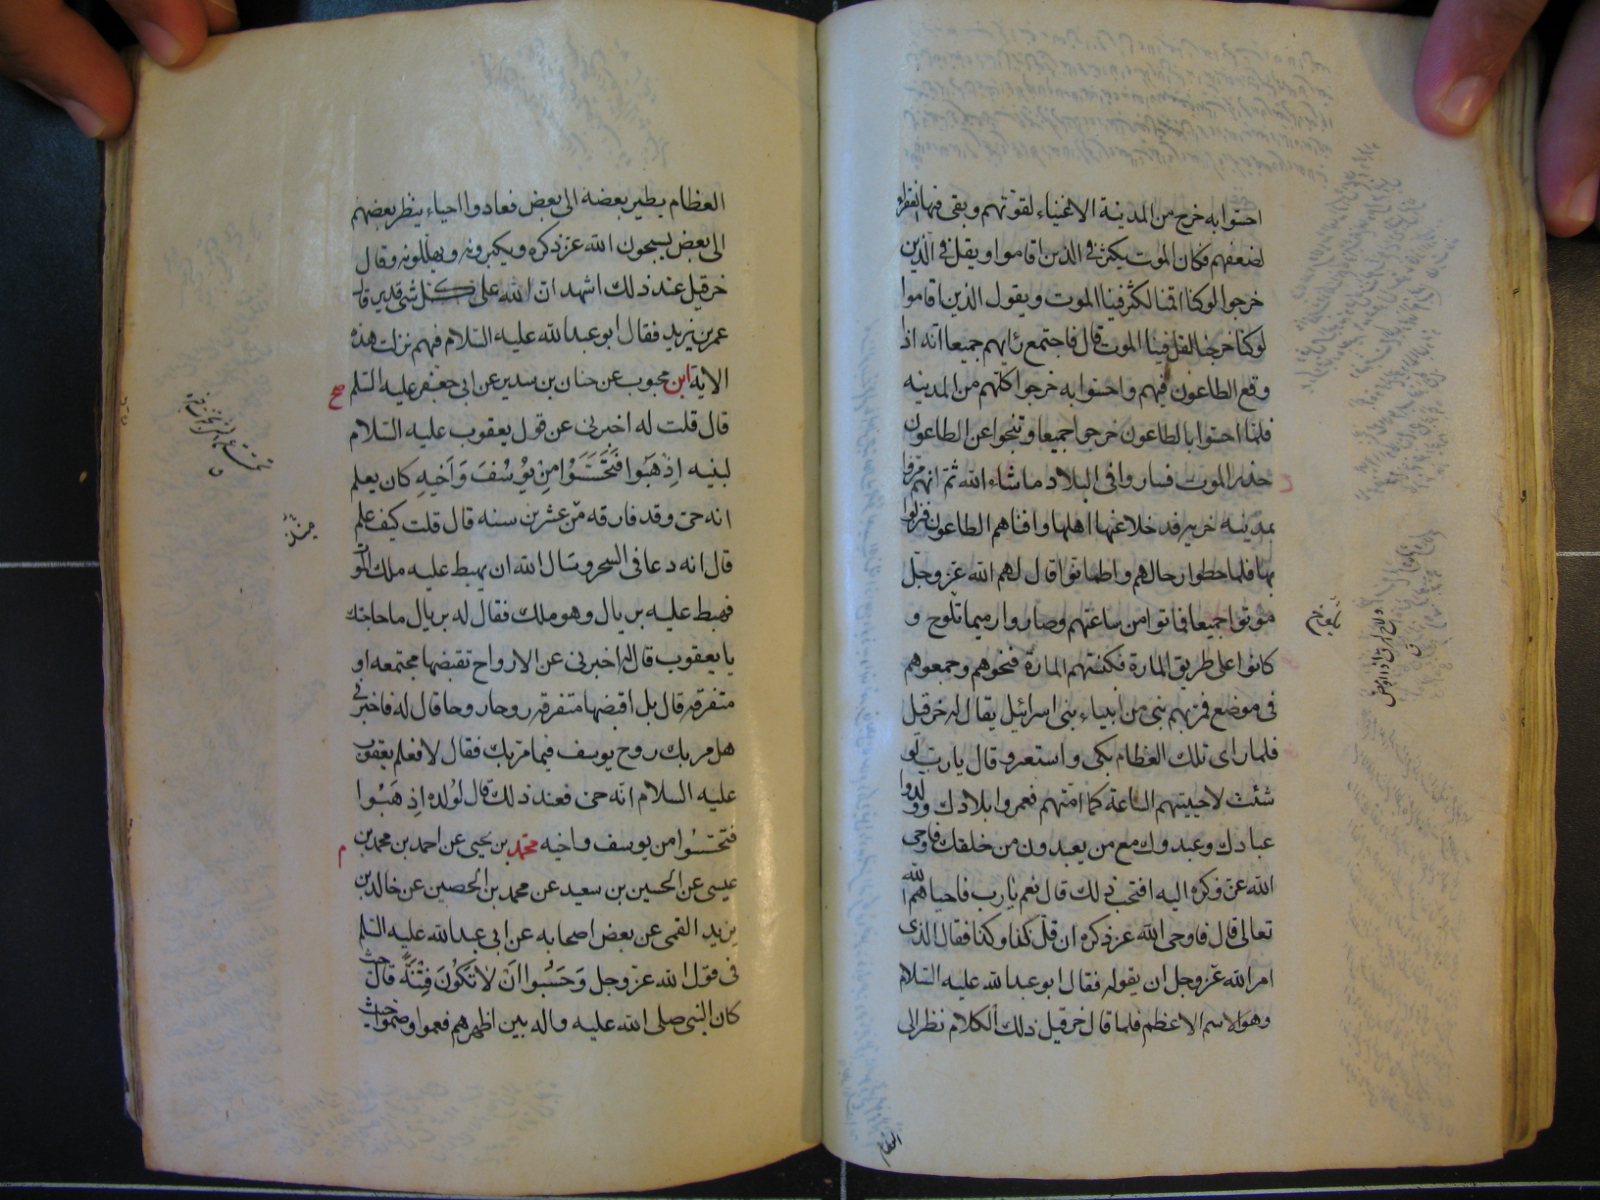 احسوا به خرج من المدينة الاغنياء لقوتهم وبقى فيها الفقراء
لضعفهم فكان الموت يكثر فى الذين اقاموا ويقل فى الذين
خرجوا لوكنا اقمنا لكثر فينا الموت ويقول الذين اقاموا
لوكنا خرجنا لقل فينا الموت قال فاجتمع رأيهم جميعا انه اذا
وقع الطاعون فيهم واحسوا به خرجوا كلهم من المدينه
فلما احسوا بالطاعون خرجوا جميعا وتنحوا عن الطاعون
حذر الموت فساروا فى البلاد ماشاء الله ثم انهم مروا
بمدينه خربه قد خلا عنها اهلها وافناهم الطاعون فنزلوا
بها فلما حطوا رحالهم واطمأنوا قال لهم الله عز وجل
موتوا جميعا فماتوا من ساعتهم وصاروا رميما تلوح و
كانوا على طريق المارة فكنستهم المارة فنحوهم وجمعوهم
فى موضع فمر بهم نبى من انبياء بنى اسرائيل يقال له خرقيل
فلما راى تلك العظام بكى واستعبر وقال يارب لو
شئت لاحييتهم الساعة كما امتهم فعمروا بلادك وولدوا
عبادك وعبدوك مع من يعبدون من خلقك فاوحى
الله عز ذكره اليه افتحب ذلك قال نعم يارب فاحياهم الله
تعالى قال فاوحى الله عز ذكره ان قل كذا وكذا فقال الذى
امر الله عز وجل ان يقوله فقال ابو عبد الله عليه السلام
وهو الاسم الاعظم فلما قال خرقيل ذلك الكلام نظر الى
العظام
العظام يطير بعضه الى بعض فعادوا احياء ينظر بعضهم
الى بعض يسبحون الله عز ذكره ويكبرونه ويهللونه وقال
خرقيل عند ذلك اشهد ان الله على كل شئ قدير قال
عمر بن يزيد فقال ابو عبد الله عليه السلام فيهم نزلت هذه
الاية ابن محبوب عن حنان بن سدير عن ابى جعفر عليه السلم
قال قلت له اخبرنى عن قول يعقوب عليه السلام
لبنيه اِذْهَبوا فَتَحَسَّسُوا مِنْ يُوسُفَ وَاَخيهِ كان يعلم
انه حى وقد فارقه من عشرين سنه قال قلت كيف علم
قال انه دعا فى السحر وسال الله ان يهبط عليه ملك الموت
فهبط عليه بريال وهو ملك فقال له بريال ما حاجتك
يا يعقوب قال له اخبرنى عن الارواح تقبضها مجتمعه او
متفرقه قال بل اقبضها متفرقه روحا روحا قال له فاخبرنى
هل مر بك روح يوسف فيما مر بك فقال لا فعلم يعقوب
عليه السلام انه حى فعند ذلك قال لولده اِذهَبُوا
فتحسسُوا من يوسف واخيه محمد بن يحيى عن احمد بن محمد بن
عيسى عن الحسين بن سعيد عن محمد بن الحصين عن خالد بن
يزيد القمى عن بعض اصحابه عن ابى عبد الله عليه السلم
فى قول الله عز وجل وَحَسُبوا اَنْ لا تَكُونَ فِتْنَةٌ قال حيث
كان النبى صلى الله عليه واله بين اظهرهم فعموا وصموا حيث